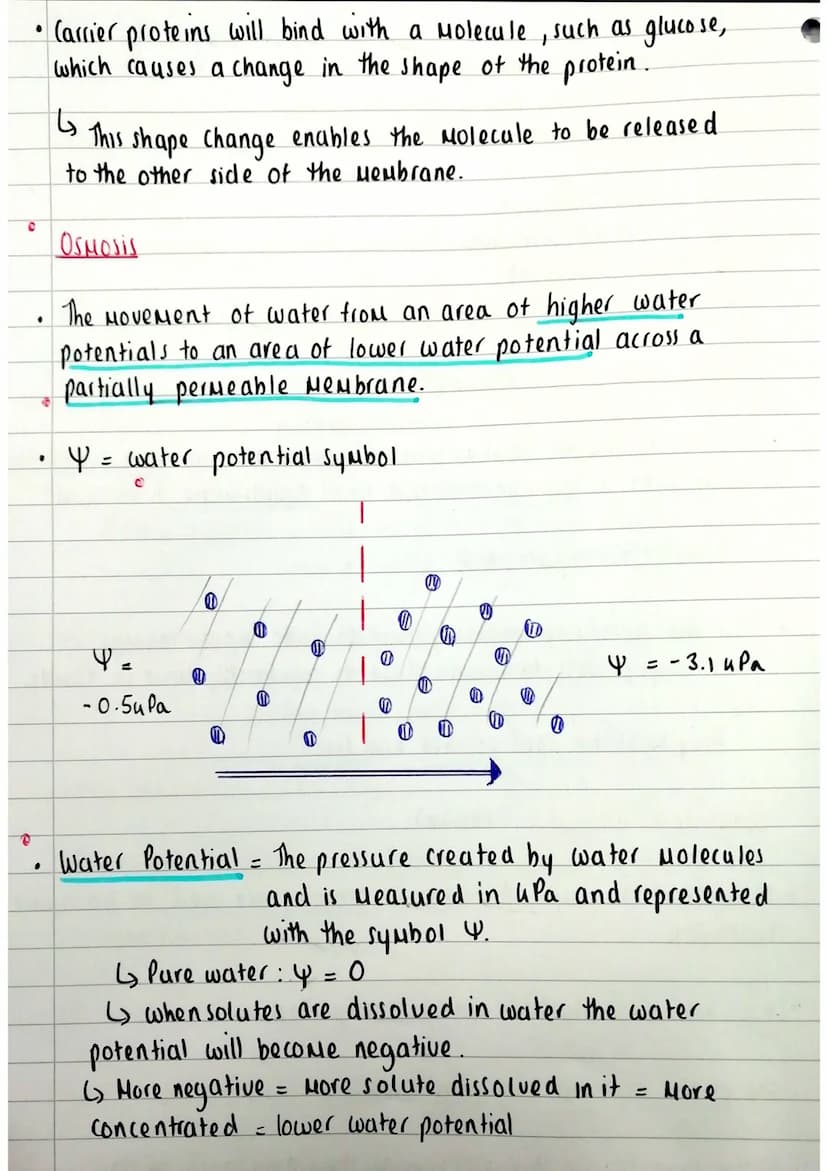 • Carrier proteins will bind with a molecule, such as glucose,
which causes a change in the shape of the protein.
↳ This shape change enables the molecule to be released
to the other side of the membrane.
Osmosis
• The movement of water from an area of higher water
potentials to an area of lower water potential across a
partially permeable membrane.
• Ψ = water potential symbol
Ψ =
-0.5kPa
Ψ = -3.1 kPa
• Water Potential = The pressure created by water molecules
and is measured in kPa and represented
with the symbol Ψ.
↳ Pure water : Ψ = 0
↳ when solutes are dissolved in water the water
potential will become negative.
↳ More negative = more solute dissolved in it = more
concentrated = lower water potential